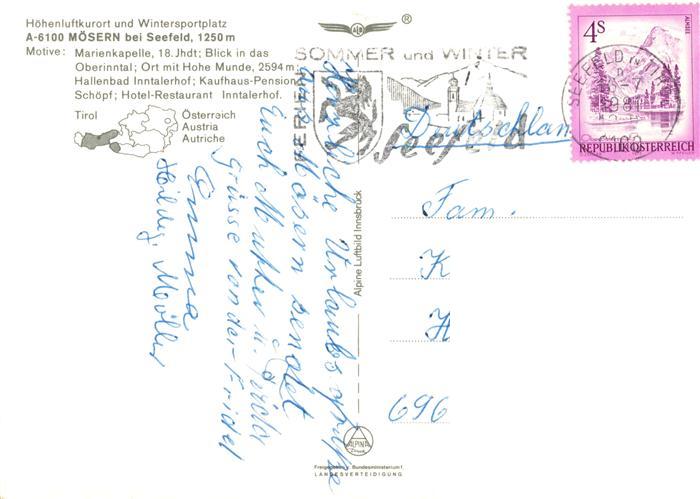 Höhenluftkurort und Wintersportplatz
A-6100 MÖSERN bei Seefeld, 1250 m
Motive: Marienkapelle, 18. Jhdt; Blick in das
Oberinntal; Ort mit Hohe Munde, 2594 m;
Hallenbad Inntalerhof; Kaufhaus-Pension
Schöpf; Hotel-Restaurant Inntalerhof.
Tirol
Österreich
Austria
Autriche
®
SOMMER und WINTER
FERIEN
Seefeld
SEEFELD
4S
ALMSEE
REPUBLIK ÖSTERREICH
Deutschland
Fam.
K
H
696
Herzliche Urlaubsgrüße
aus Mösern sendet
Euch Mutter u.
Grüsse
Emma
Hildeg. Müller
Alpine Luftbild Innsbruck
ALPINA
Freigegeben v. Bundesministerium f.
LANDESVERTEIDIGUNG